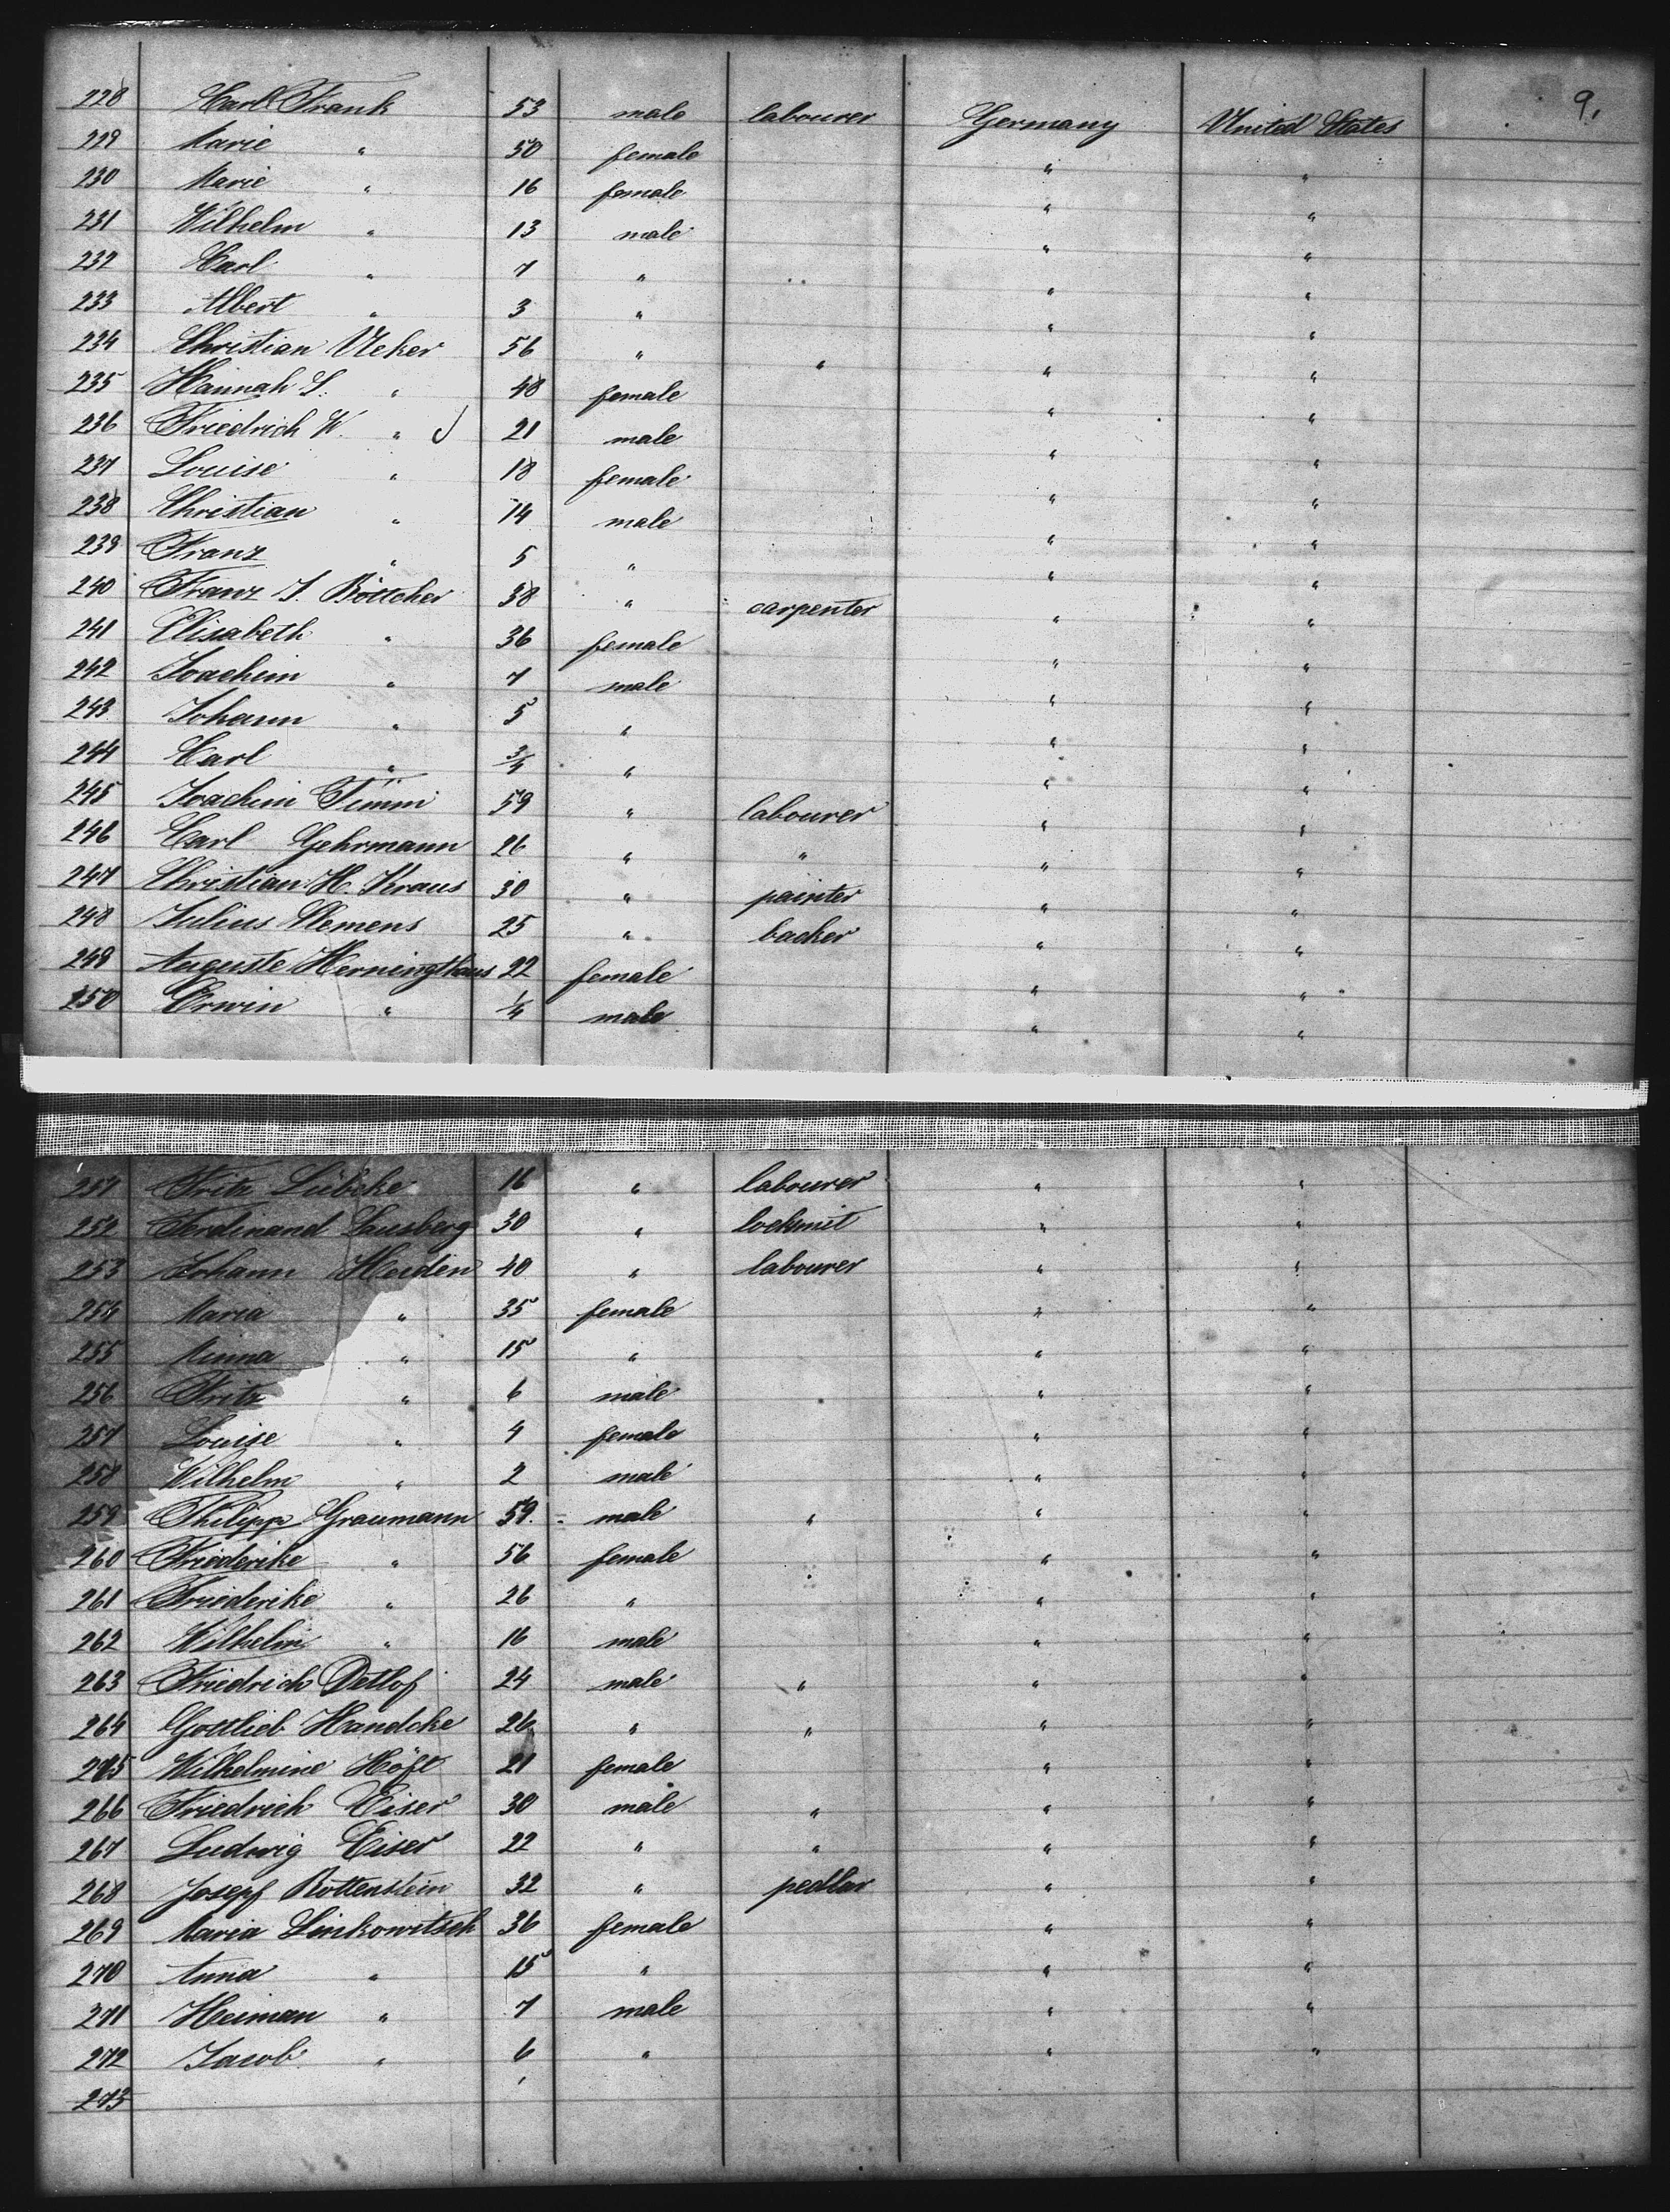 9.
228 Carl Frank 53 male labourer Germany United States
229 Marie " 50 female " "
230 Marie " 16 female " "
231 Wilhelm " 13 male " "
232 Carl " 7 " " "
233 Albert " 3 " " "
234 Christian Ueker 56 " " " "
235 Hannah S. " 48 female " "
236 Friedrich W. " 21 male " "
237 Louise " 18 female " "
238 Christian " 14 male " "
239 Franz " 5 " " "
240 Franz J. Böttcher 38 " carpenter " "
241 Elisabeth " 36 female " "
242 Joachim " 7 male " "
243 Johann " 5 " " "
244 Carl " 3/4 " " "
245 Joachim Timm 59 " labourer " "
246 Carl Gehrmann 26 " " " "
247 Christian H. Kraus 30 " painter " "
248 Julius Clemens 25 " backer " "
249 Auguste Herningthaus 22 female " "
250 Erwin " 1/4 male " "
251 Fritz Lübcke 16 " labourer " "
252 Ferdinand Lausberg 30 " locksmit " "
253 Johann Heiden 40 " labourer " "
254 Maria " 35 female " "
255 Minna " 15 " " "
256 Fritz " 6 male " "
257 Louise " 4 female " "
258 Wilhelm " 2 male " "
259 Philipp Graumann 59. male " " "
260 Friederike " 56 female " "
261 Friederike " 26 " " "
262 Wilhelm " 16 male " "
263 Friedrich Detlof 24 male " " "
264 Gottlieb Handcke 26 " " " "
265 Wilhelmine Höft 21 female " "
266 Friedrich Eiser 30 male " " "
267 Ludwig Eiser 22 " " " "
268 Josepf Rottenstein 32 " pedlar " "
269 Maria Linkowitsch 36 female " "
270 Anna " 15 " " "
271 Heiman " 7 male " "
272 Jacob " 6 " " "
273